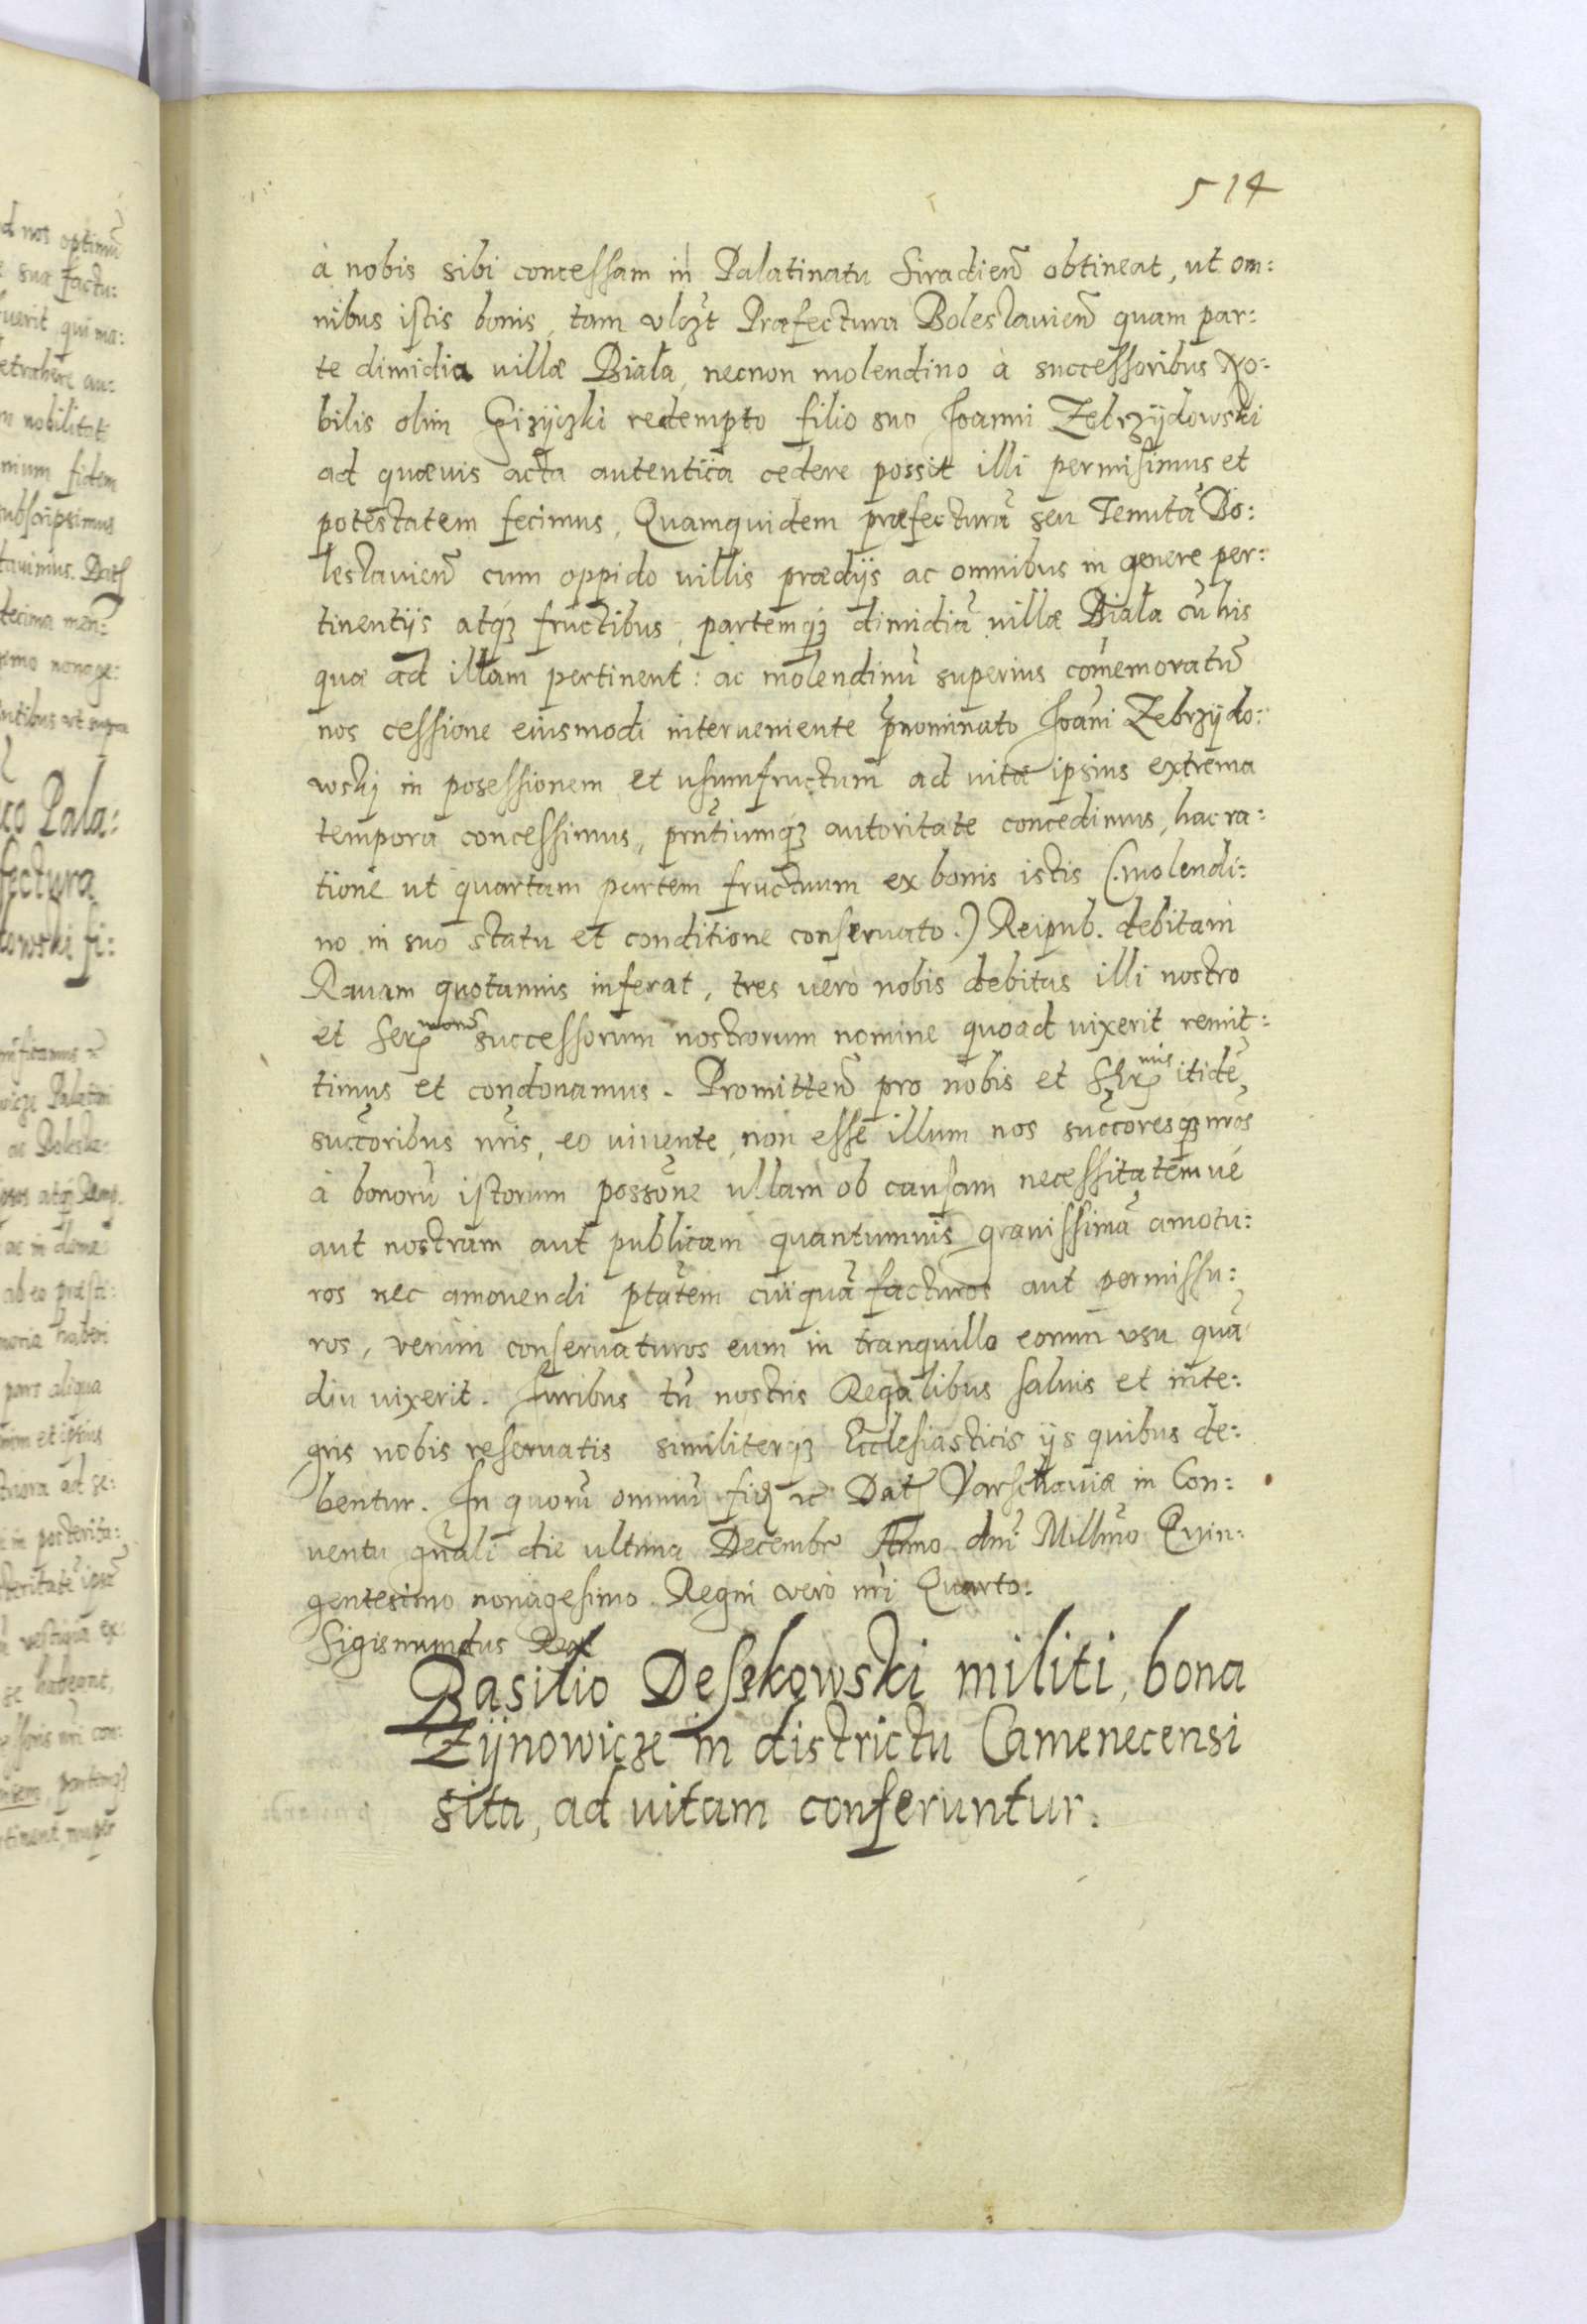 514
à nobis sibi concessam in Palatinatu Siradien̄ obtineat, ut om:
nibus istis bonis, tam vlꝫt Præfectura Boleslauien̄ quam par:
te dimidia villæ Biała, necnon molendino à successoribus No:
bilis olim Giżyczki redempto filio suo Joanni Zebrzydowski
ad quævis acta autentica cedere possit illi permisimus et
potestatem fecimus, Quamquidem præfecturā seu Tenutā Bo:
leslauien̄ cum oppido villis prædijs ac omnibus in genere per:
tinentijs atqꝫ fructibus, partemqꝫ dimidiā villæ Biała cū his
quæ ad illam pertinent: ac molendinū superius com̄emoratū
nos cessione eiusmodi interueniente p̄nominato Joan̄i Zebrzydo:
wskj in posessionem et vsumfructum ad vitæ ipsius extrema
tempora concessimus, pn̄tiumqꝫ autoritate concedimus, hac ra:
tione ut quartam partem fructuum ex bonis istis (.molendi:
no in suo statu et conditione conseruato.) Reipub. debitam
Rauam quotannis inferat, tres vero nobis debitas illi nostro
et Ser. morū successorum nostrorum nomine quoad vixerit remit:
timus et condonamus. Promitten̄ pro nobis et Ser. mis itidē
succoribus nr̄is, eo viuente, non esse illum nos succoresqꝫ nr̄os
à bonorū istorum possōne ullam ob causam necessitatemué
aut nostram aut publicam quantumuis grauissimā amotu:
ros nec amouendi ptātem cuiquā facturos aut permissu:
ros, verum conseruaturos eum in tranquillo eorum vsu quā
diu vixerit. Juribus tn̄ nostris Regalibus saluis et inte:
gris nobis reseruatis similiterqꝫ Ecclesiasticis ijs quibus de:
bentur. In quorū omniū fidē etc Dat. Varschauiæ in Con:
uentu gn̄ali die ultima Decembr Anno dn̄i Mill̄mo Quin:
gentesimo nonagesimo. Regni vero nr̄i Quarto.
Sigismundus Rex
Basilio Deszkowski militi, bona
Zynowicze in districtu Camenecensi
sita, ad vitam conferuntur.